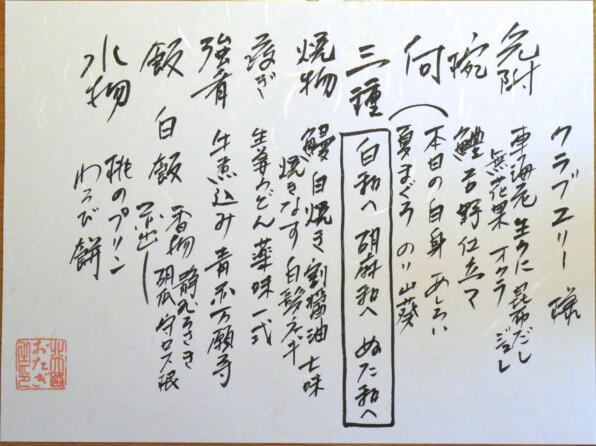 クラブユリー 様
先附 車海老 生うに 昆布だしジュレ
無花果 オクラ
椀 鱧吉野仕立て
向 本日の白身 あしらい
夏まぐろ のり山葵
三種 白和へ 胡麻和へ ぬた和へ
焼物 鰻白焼き 割醤油 七味
焼きなす 白髪ネギ
凌ぎ 生姜うどん 薬味一式
強肴 牛煮込み 青不 万願寺
飯 白飯 香物 静むらさき
胡瓜 守口大根
赤出し
水物 桃のプリン
わらび餅
おたぎ